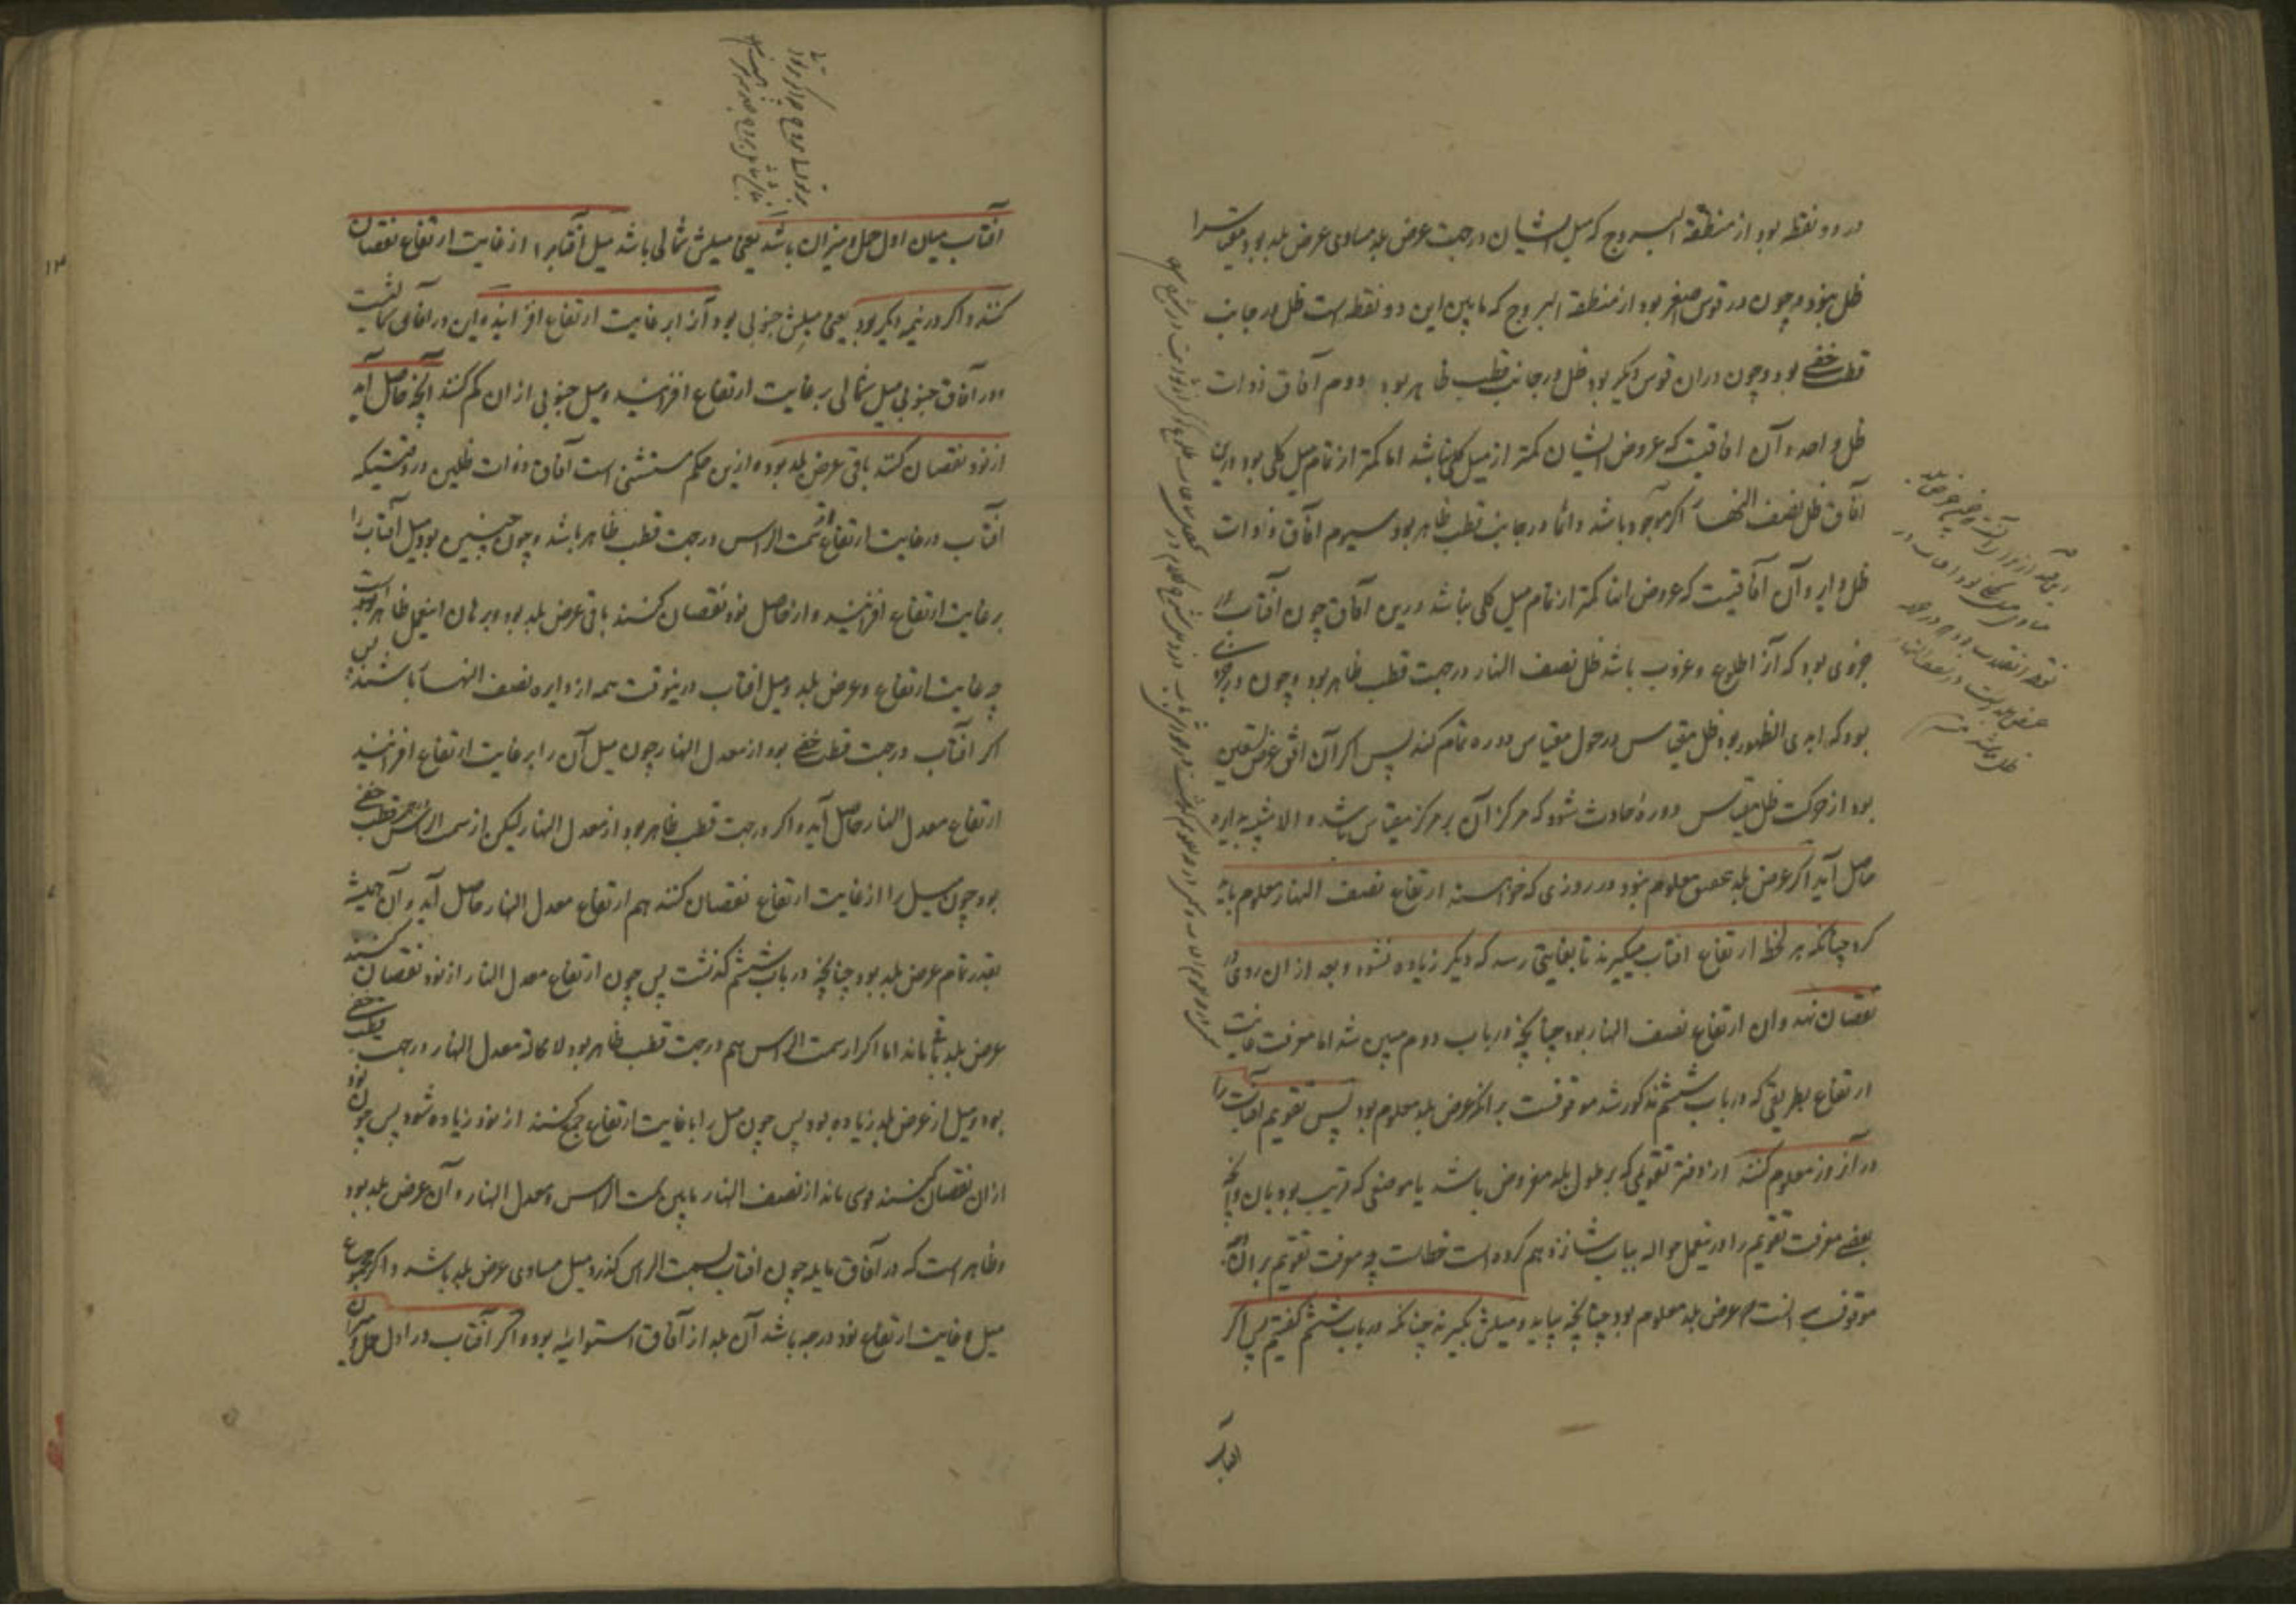 در دو نقطه بود از منطقة البروج که میل ایشان در جهت عرض بلد مساوی عرض بلد بود مقیاس را
ظل نبود و چون در قوس اصغر بود از منطقة البروج که مابین این دو نقطه است ظل در جانب
قطب خفی بود و چون در ان قوس دیگر بود ظل در جانب قطب ظاهر بود دوم آفاق ذوات
ظل واحد و آن افاقیست که عروض ایشان کمتر از میل کلی نباشد اما کمتر از تمام میل کلی بود درین
آفاق ظل نصف النهار اگر موجود باشد دائما در جانب قطب ظاهر بود سیوم آفاق ذوات
ظل دایر و آن آفاقیست که عروض انها کمتر از تمام میل کلی نباشد درین آفاق چون آفتاب در
جزوی بود که آنرا طلوع و غروب باشد ظل نصف النهار در جهت قطب ظاهر بود و چون در جزوی
بود که ابدی الظهور بود ظل مقیاس در حول مقیاس دوره تمام کند پس اگر آن افق عرض تسعین
بود از حرکت ظل مقیاس دورهٔ حادث شود که مرکز آن بر مرکز مقیاس باشد و الا شبیه بدایره
حاصل آید اگر عرض بلد معلوم نبود در روزی که خواسته ارتفاع نصف النهار معلوم باید
کرد چنانکه هر لحظه ارتفاع افتاب میگیرند تا بغایتی رسد که دیگر زیاده نشود و بعد از ان روی در
نقصان نهد و ان ارتفاع نصف النهار بود چنانچه در باب دوم مبین شد اما معرفت غایت
ارتفاع بطریقی که در باب ششم مذکور شد موقوفست بر انکه عرض بلد معلوم بود پس تقویم افتاب را
در آنروز معلوم کنند از دفتر تقویمی که بر طول بلد مفروض باشد یا موضعی که قریب بود بان و انچه
بعضی معرفت تقویم را درینمحل حواله بباب شانزدهم کرده است خطاست چه معرفت تقویم بر ان
موقوف بر انست که عرض بلد معلوم بود چنانچه بیاید و میلش بگیرند چنانکه در باب ششم گفتیم پس اگر
افتاب
آفتاب میان اول حمل و میزان باشد یعنی میلش شمالی باشد میل آفتاب را از غایت ارتفاع نقصان
کنند و اگر در نیمه دیگر بود یعنی میلش جنوبی بود آنرا بر غایت ارتفاع افزایند و این در آفاق شمالیست
و در آفاق جنوبی میل شمالی بر غایت ارتفاع افزایند و میل جنوبی از ان کم کنند آنچه حاصل آید
از نود نقصان کنند باقی عرض بلد بود و ازین حکم مستثنی است آفاق ذوات ظلین در وقتیکه
آفتاب در غایت ارتفاع از سمت الراس در جهت قطب ظاهر باشد و چون چنین بود میل آفتاب را
بر غایت ارتفاع افزایند و از حاصل نود نقصان کنند باقی عرض بلد بود و برهان اینعمل ظاهر است
چه غایت ارتفاع و عرض بلد و میل افتاب درینوقت همه از دایره نصف النهار باشند پس
اگر افتاب در جهت قطب خفی بود از معدل النهار چون میل آن را بر غایت ارتفاع افزایند
ارتفاع معدل النهار حاصل آید و اگر در جهت قطب ظاهر بود از معدل النهار لیکن از سمت الراس در جهت قطب خفی
بود چون میل را از غایت ارتفاع نقصان کنند هم ارتفاع معدل النهار حاصل آید و آن همیشه
بقدر تمام عرض بلد بود چنانچه در باب ششم گذشت پس چون ارتفاع معدل النهار از نود نقصان کنند
عرض بلد باقی ماند اما اگر از سمت الراس هم در جهت قطب ظاهر بود لا محاله معدل النهار در جهت قطب خفی
بود و میل از عرض بلد زیاده بود پس چون میل را با غایت ارتفاع جمع کنند از نود زیاده شود پس چون نود
از ان نقصان کنند قوسی ماند از نصف النهار مابین سمت الراس و معدل النهار و آن عرض بلد بود
و ظاهر است که در آفاق مایله چون افتاب بسمت الراس گذرد میل مساوی عرض بلد باشد و اگر مجموع
میل و غایت ارتفاع نود درجه باشد آن بلد از آفاق استوائیه بود و اگر آفتاب در اول حمل و میزان